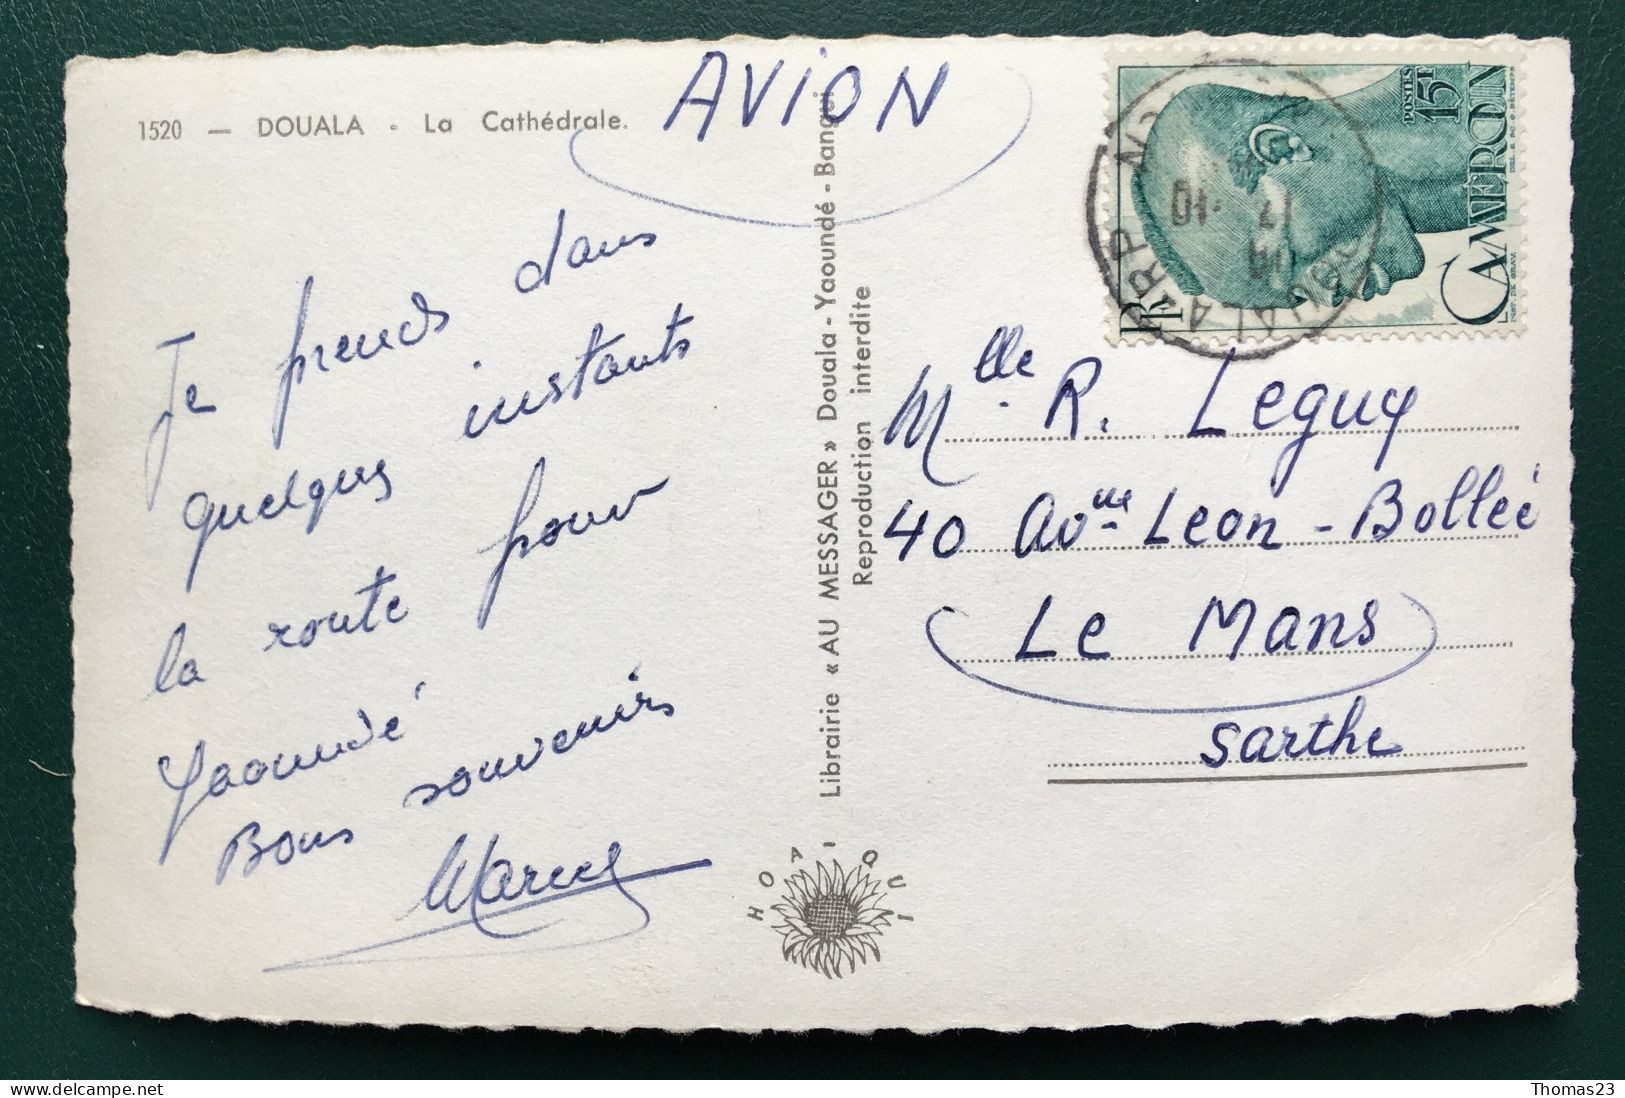 1520 — DOUALA - La Cathédrale.
AVION
Je prends dans
quelques instants
la route pour
Yaoundé
Bons souvenirs
Marcel
Librairie « AU MESSAGER » Douala - Yaoundé - Bangui
Reproduction interdite
HOA-QUI
POSTES 15F
CAMEROUN
RF
17 -10
Mlle R. Leguy
40 Avnue Leon-Bolleé
Le Mans
Sarthe
delcampe.net
Thomas23